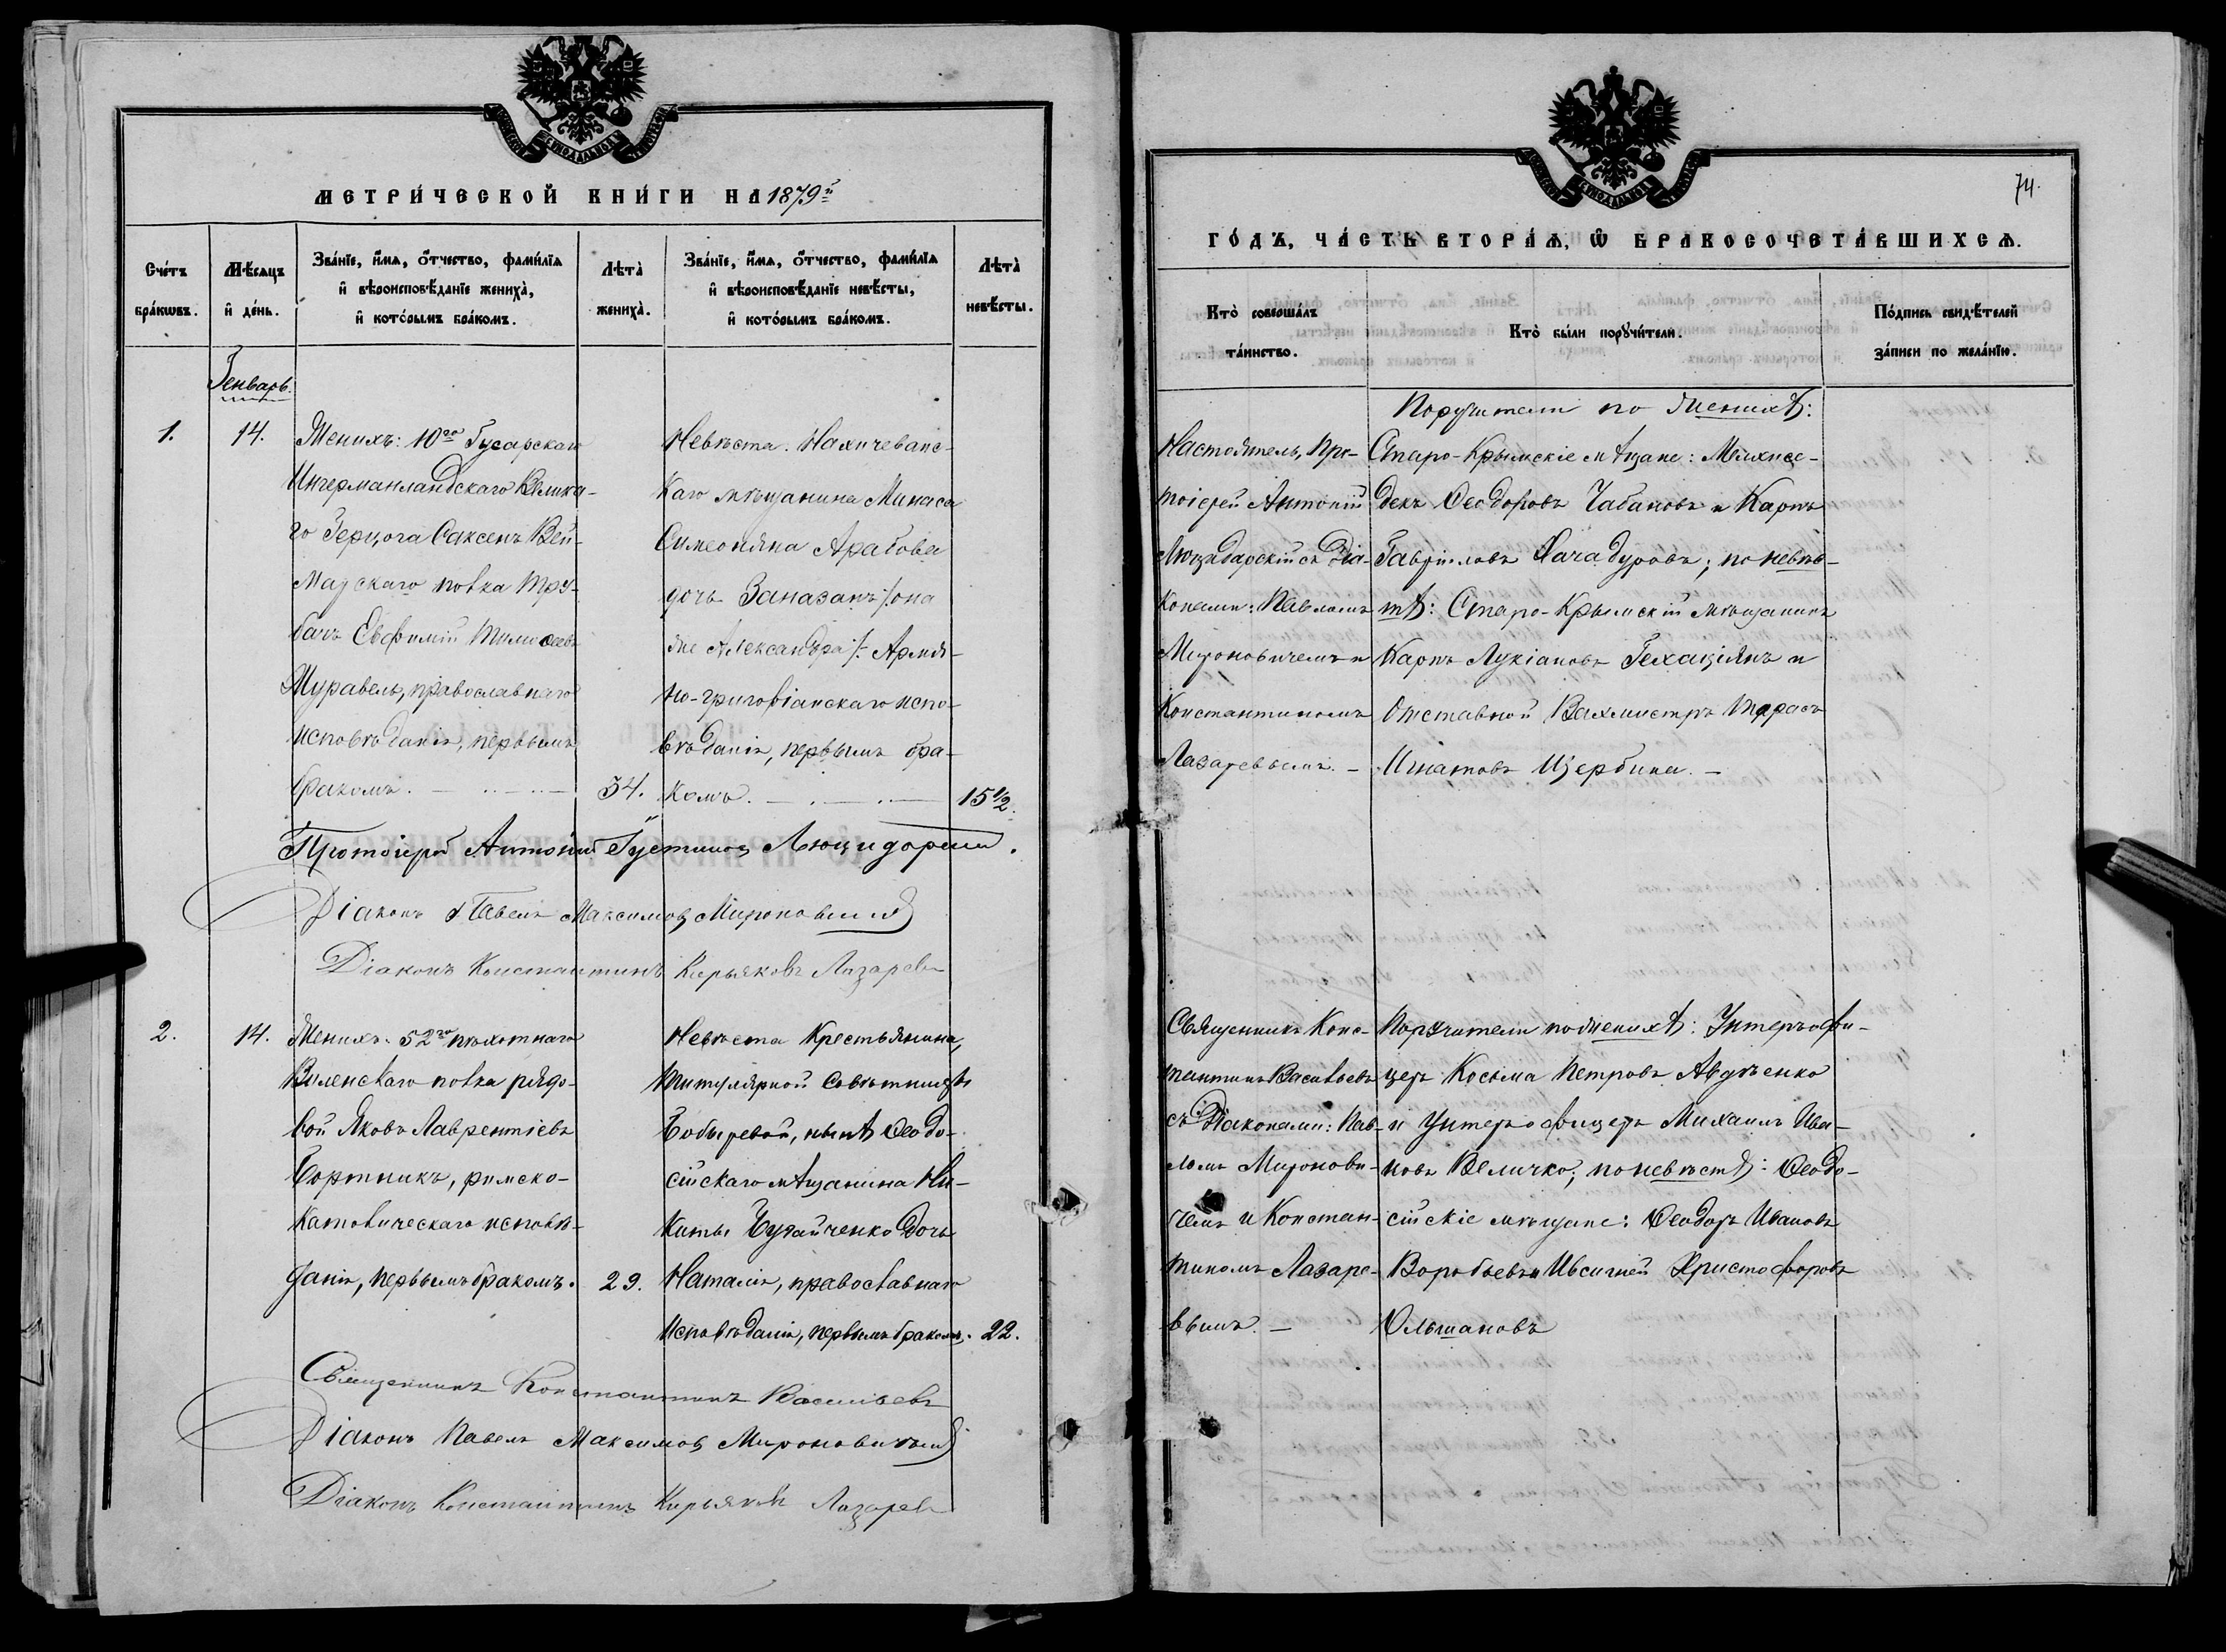 МЕТРИ́ЧЕСКОЙ КНИ́ГИ НА 1879й
Сче́тъ бра́кѡвъ.
Мѣ́сяцъ и҆ де́нь.
Зва́нїе, и҆́мѧ, ѻ҆́тчество, фами́лїѧ
и҆ вѣроисповѣ́данїе жениха̀,
и҆ кото́рымъ бра́комъ.
Лѣта̀ жениха̀.
Зва́нїе, и҆́мѧ, ѻ҆́тчество, фами́лїѧ
и҆ вѣроисповѣ́данїе невѣ́сты,
и҆ кото́рымъ бра́комъ.
Лѣта̀ невѣ́сты.
Генварь.
1.
14.
Женихъ: 10го Гусарскаго
Ингерманландскаго Велика-
го Герцога Саксенъ Вей-
марскаго полка Тру-
бачъ Евфимій
Журавель, православнаго
исповѣданія, первымъ
бракомъ.
34.
Невѣста. Нахичеванс-
каго мѣщанина Минаса
Симеоняна Арабова
дочь Заназанъ /: она
же Александра :/ Армя-
но-григоріанскаго испо-
вѣданія, первымъ бра-
комъ.
15 1/2.
Протоіерей Антоній Густинов Люцидарскій.
Діаконъ Павелъ Максимов Мироновичъ
Діаконъ Константинъ Кирьяковъ Лазаревъ
2.
14.
Женихъ. 52го пѣхотнаго
Виленскаго полка рядо-
вой Яковъ Лаврентіевъ
Бортникъ, римско-
католическаго исповѣ-
данія, первымъ бракомъ.
29.
Невѣста Крестьянина,
титулярной совѣтницы
Бобыревой, нынѣ Ѳеодо-
сійскаго мѣщанина Ни-
киты Бугайченко дочь
Наталія, православнаго
исповѣданія, первымъ бракомъ.
22.
Священникъ Константинъ Васильевъ
Діаконъ Павелъ Максимов Мироновичъ
Діаконъ Константинъ Кирьяковъ Лазаревъ
74.
ГО́ДЪ, ЧА́СТЬ ВТОРА́Ѧ, Ѡ҆ БРАКОСОЧЕТА́ВШИХСѦ.
Кто̀ соверша́лъ та́инство.
Кто̀ бы́ли порꙋчи́тели.
По́дпись свидѣ́телей за́писи по жела́нїю.
Настоятель, Про-
тоіерей Антоній
Люцидарскій съ Діа-
конами: Павломъ
Мироновичемъ и
Константиномъ
Лазаревымъ. –
Поручители по женихѣ:
Старо-Крымскіе мѣщане: Мелхисе-
декъ Ѳеодоровъ Чабановъ и Карпъ
Гавріиловъ Хачадуровъ; по невѣс-
тѣ: Старо-Крымскій мѣщанинъ
Карпъ Лукіановъ Гелаціянъ и
Отставной Вахмистръ Тарасъ
Игнатовъ Щербина. –
Священникъ Конс-
тантинъ Васильевъ
съ Діаконами: Пав-
ломъ Миронови-
чемъ и Констан-
тиномъ Лазаре-
вымъ. –
Поручители по женихѣ: Унтеръ-офи-
церъ Косьма Петровъ Авдѣенко
и Унтеръ-офицеръ Михаилъ Ива-
новъ Величко; по невѣстѣ: Ѳеодо-
сійскіе мѣщане: Ѳеодоръ Ивановъ
Воробьевъ и Евсигней Христофоровъ
Ольшановъ